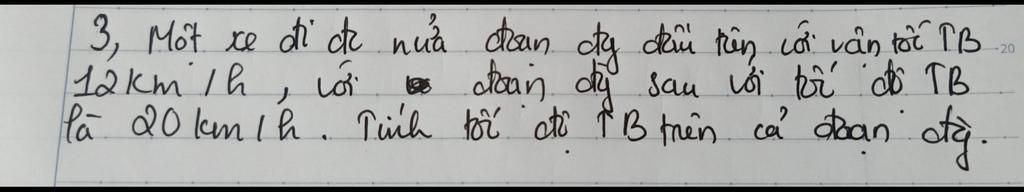 3, Một xe đi đc nửa đoạn đg đầu tiên với vân tốc TB
12km/h, với đoạn đg sau với tốc độ TB
là 20km/h. Tính tốc độ TB trên cả đoạn đg.